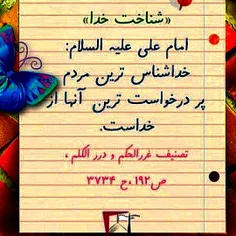 «شناخت خدا»
امام علی علیه السلام:
خداشناس ترین مردم
پر درخواست ترین آنها از
خداست.
تصنیف غررالحکم و درر الکلم ،
ص۱۹۲،ح ۳۷۳۴